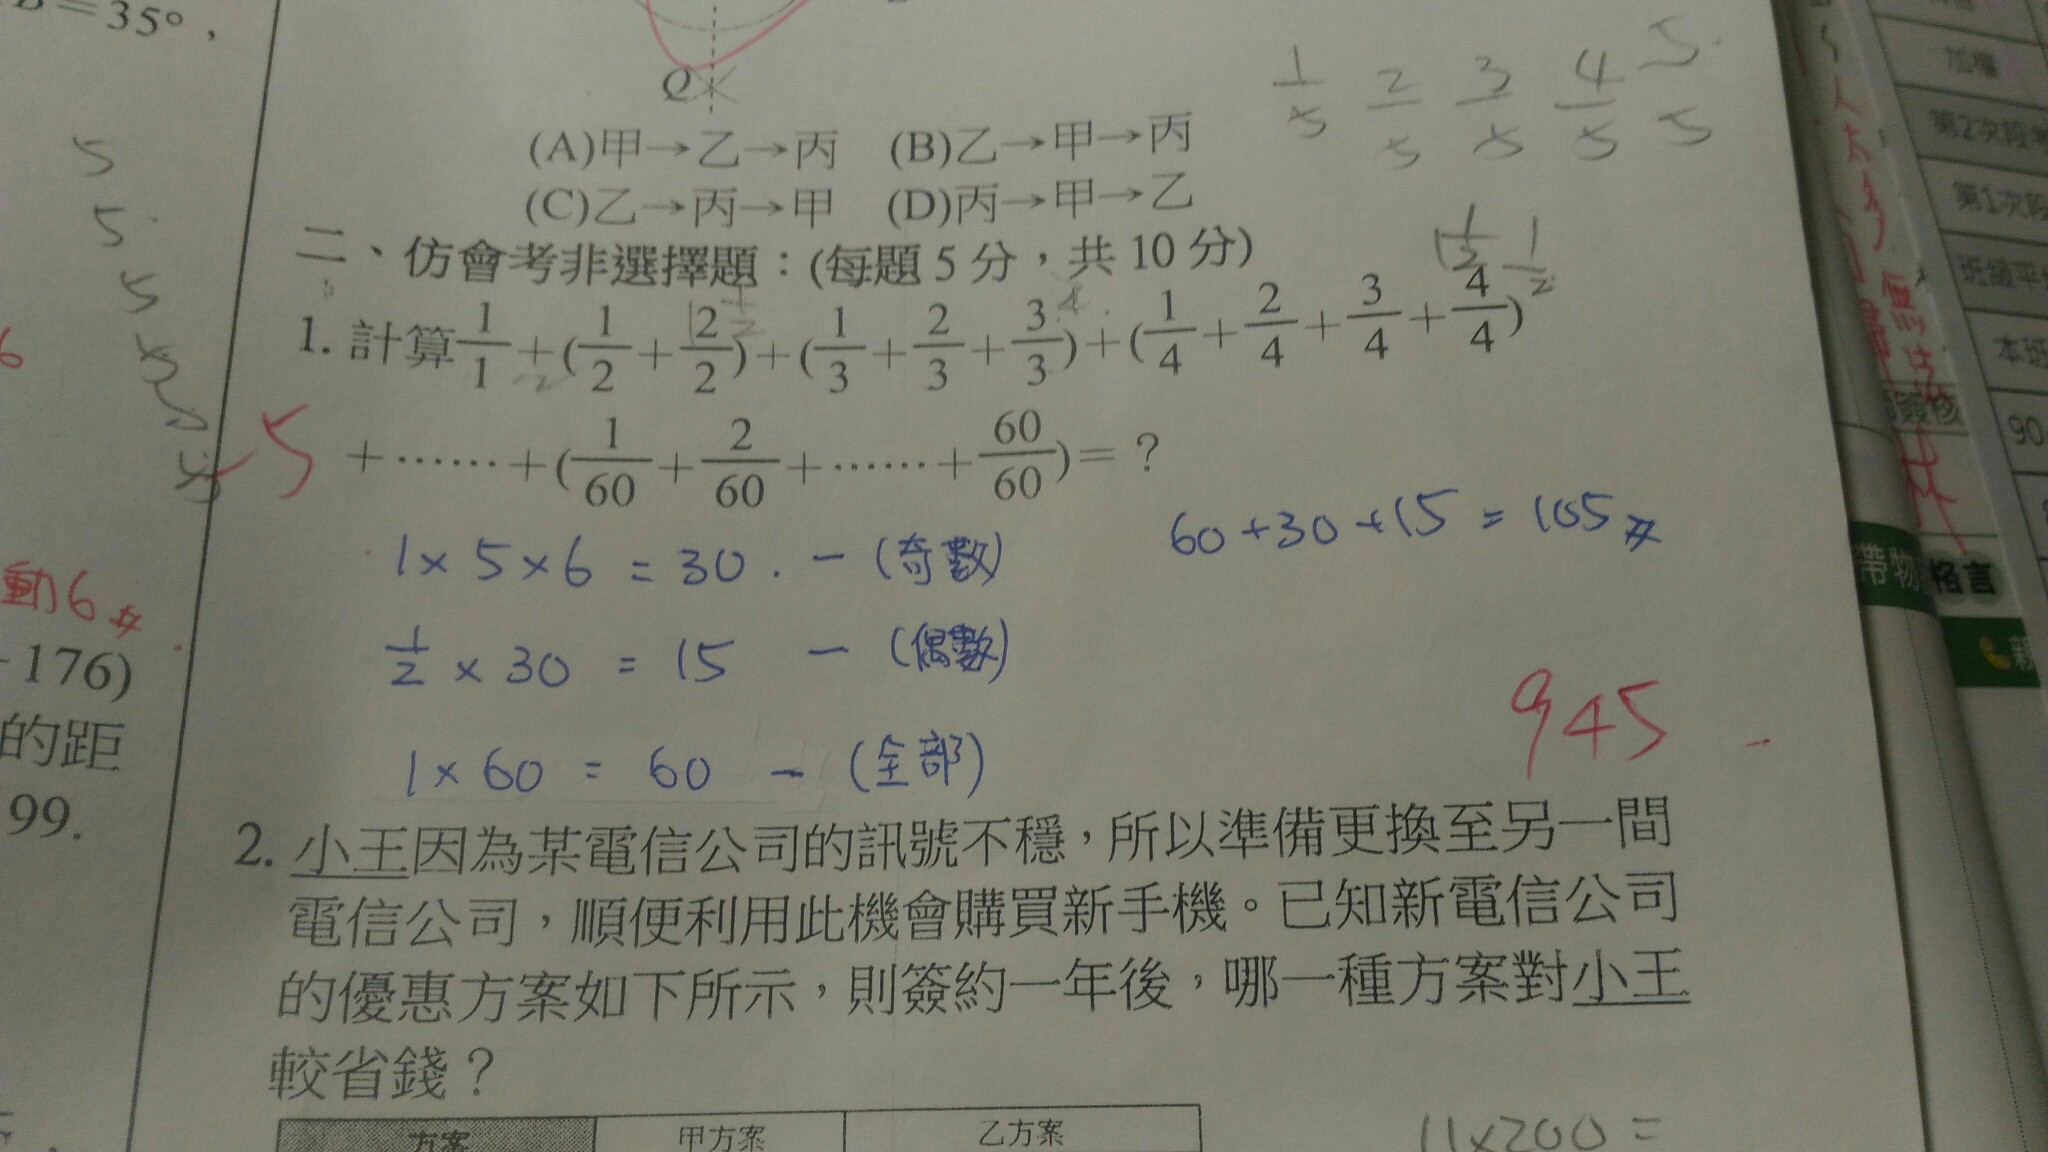 B=35°，
Q
1/5 2/5 3/5 4/5 5/5
(A)甲→乙→丙 (B)乙→甲→丙
(C)乙→丙→甲 (D)丙→甲→乙
5
5
5
二、仿會考非選擇題：(每題5分，共10分)
1. 計算 1/1+(1/2+2/2)+(1/3+2/3+3/3)+(1/4+2/4+3/4+4/4)
+……+(1/60+2/60+……+60/60)=？
-5
1×5×6=30. -(奇數)
60+30+15=105#
1/2×30=15 -(偶數)
1×60=60 -(全部)
945
2. 小王因為某電信公司的訊號不穩，所以準備更換至另一間
電信公司，順便利用此機會購買新手機。已知新電信公司
的優惠方案如下所示，則簽約一年後，哪一種方案對小王
較省錢？
方案 甲方案 乙方案
11×200=
6
動6#
-176)
的距
99.
加權
第2次段考
第1次段
班級平
本班
90
帶物
格言